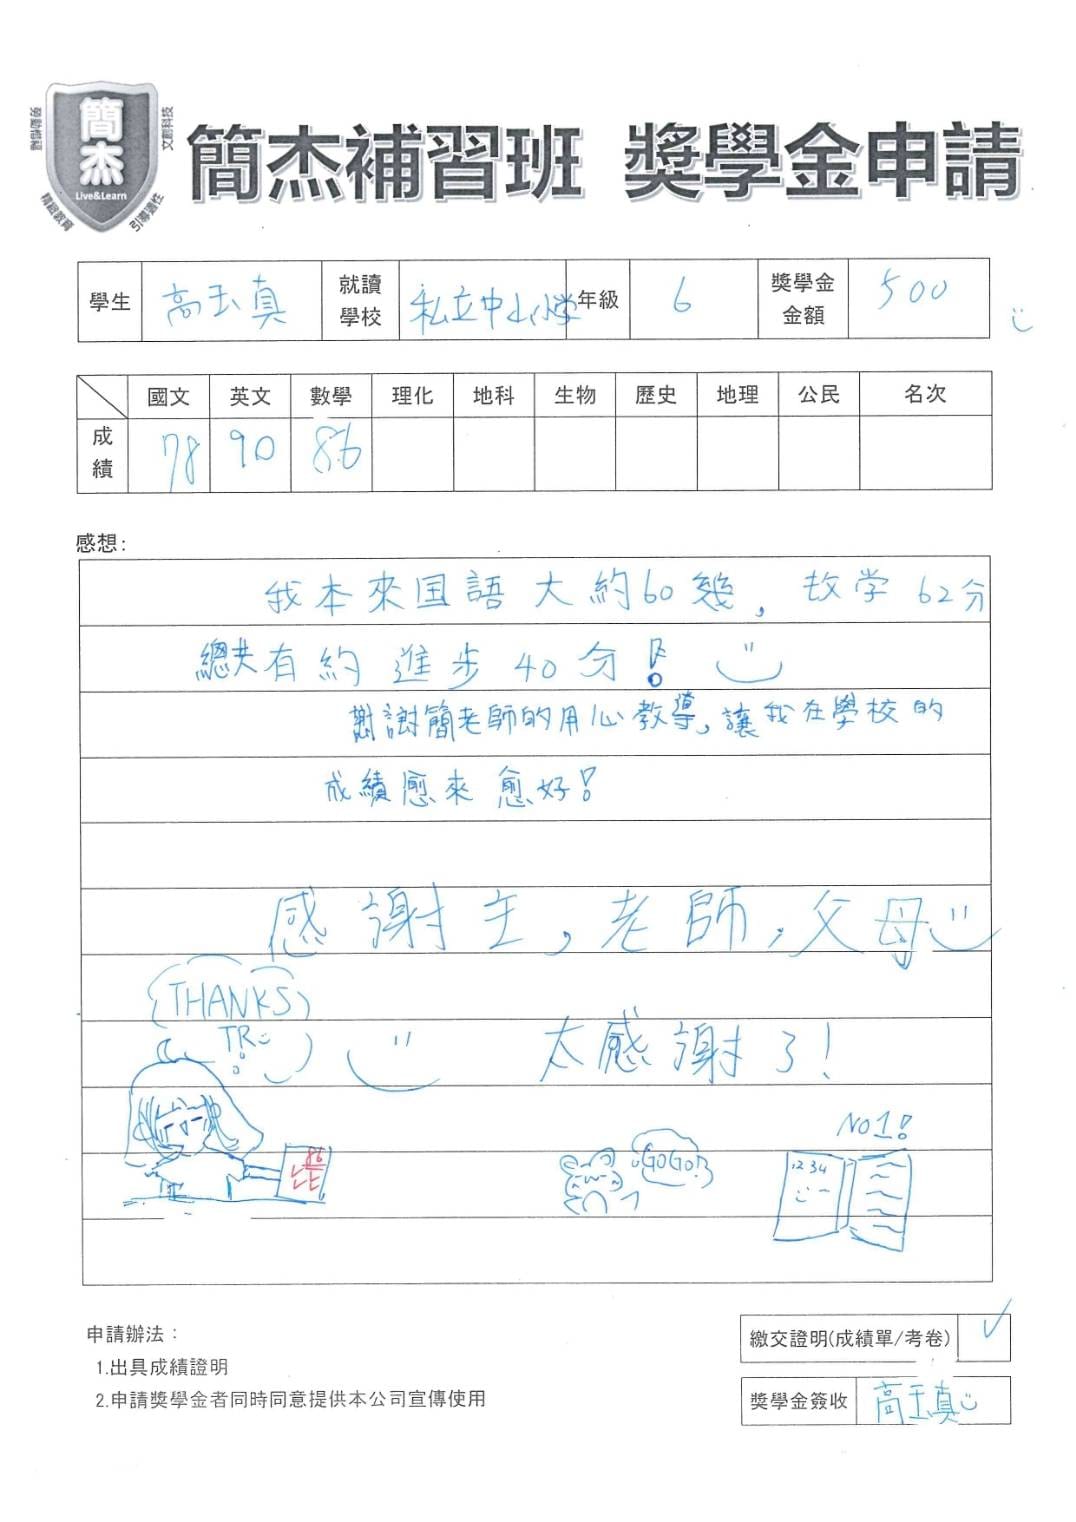 簡杰
Live&Learn
勞動楷模
文創科技
精緻教育
引導適性
簡杰補習班 獎學金申請
學生 高玉真 就讀學校 私立中山小学 年級 6 獎學金金額 500
國文 英文 數學 理化 地科 生物 歷史 地理 公民 名次
成績 78 90 86
感想:
我本來国語大約60幾, 故学 62分
總共有約進步40分!
謝謝簡老師的用心教導,讓我在學校的
成績愈來愈好!
感謝主,老師,父母
THANKS
TR
太感謝了!
86
NO1!
GOGO!
12 34
申請辦法：
1.出具成績證明
2.申請獎學金者同時同意提供本公司宣傳使用
繳交證明(成績單/考卷) ✓
獎學金簽收 高玉真